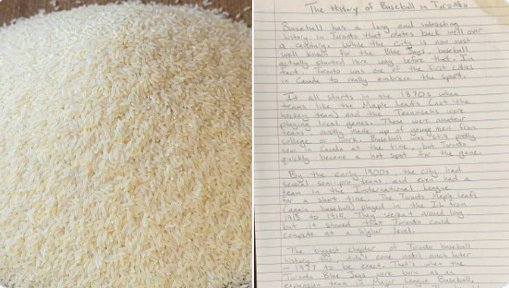 The History of Baseball in Toronto
Baseball has a long and interesting
history in Toronto that dates back well over
a century. While the city is now most
well known for the Blue Jays, baseball
actually started here way before that. In
fact, Toronto was one of the first cities
in Canada to really embrace the sport.
It all starts in the 1870s when
teams like the Maple Leafs (not the
hockey team) and the were
playing local games. These were amateur
teams mostly made up of young men from
college or work. Baseball was still pretty
new in Canada at the time, but Toronto
quickly became a hot spot for the game.
By the early 1900s, the city had
several semi-pro teams and even had a
team in the International League
for a short time. The Toronto Maple Leafs
(again baseball) played in the IL from
to 1918. They weren't around long
but it showed that Toronto could
compete at a higher level.
The biggest chapter of Toronto baseball
history didn't come until even later
– 1977 to be exact. That's when the
Toronto Blue Jays were born as an
expansion team in Major League Baseball.